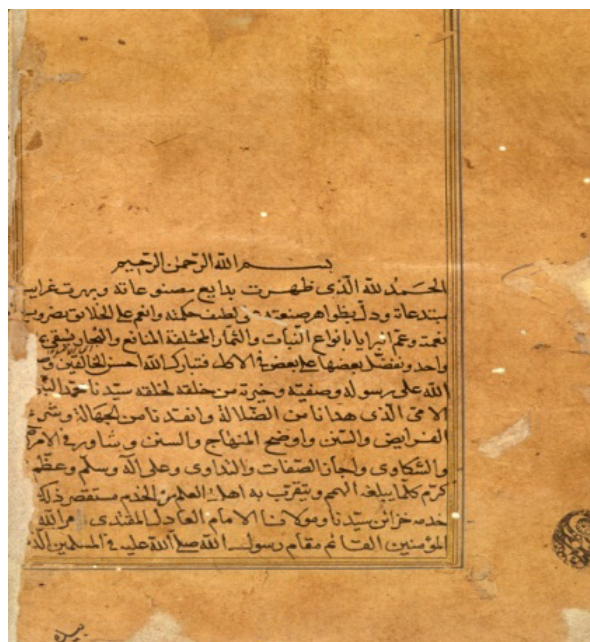 بسم الله الرحمن الرحيم
الحمد لله الذى ظهرت بدايع مصنوعاته وبهرت غرايب
مبتدعاته ودل بظواهر صنعته على لطف حكمته وانعم على الخلائق بضروب
نعمته وعم البرايا بانواع النبات والثمار المختلفة المنافع والنجار يسقى
واحد وتفضل بعضها على بعض فى الاكل فتبارك الله احسن الخالقين
الله على رسوله وصفيه وخيرته من خلقه لخلقه سيدنا محمد النبى
الامى الذى هدانا من الضلالة وانقذنا من الجهالة وشرع
الفرايض والسنن واوضح المنهاج والسنن وشاور فى الامر
والشكاوى واجان الصفات والتداوى وعلى آله وسلم وعظم
كرم كلما يبلغه الهمم ويتقرب به اهل العلم من الخدم مستقصر ذلك
خدمه خزائن سيدنا ومولانا الامام العادل المقتدى بامر الله
المؤمنين القائم مقام رسول الله صلى الله عليه فى المسلمين